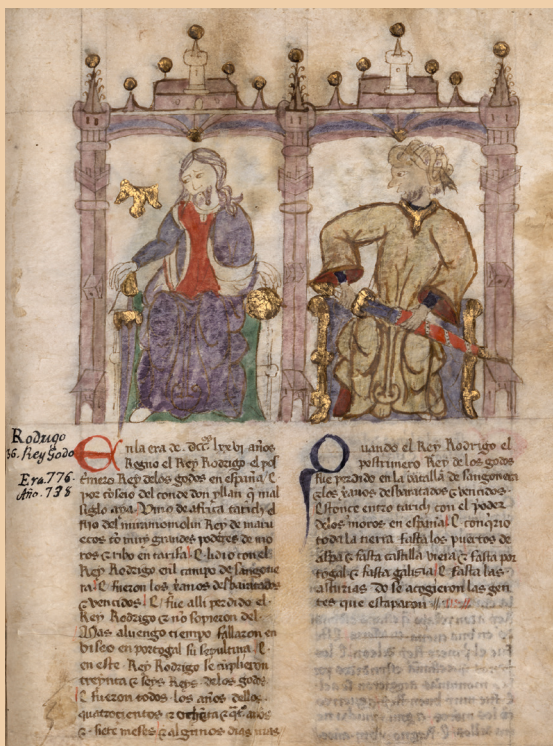 Rodrigo
36. Rey Godo
Era. 776.
Año. 738
En la era de. dcc.º lxxvi. años
Regno el Rey Rodrigo. el pos
t͂mero Rey de los godos en españa ⁊
por cōseio del conde don yllan q̄ mal
siglo aya. Vino de africa tarich el
fijo del miramomolin Rey de marru
ecos cō muy grandes podres de mo
ros ⁊ ribo en tarifa ⁊ lidio con el
Rey Rodrigo en il campo de sangone
ra ⁊ fueron los xanos desbaratados
⁊ vençidos ⁊ fue alli perdido el
Rey Rodrigo ⁊ no sopieron del
Mas aluengo tiempo fallaron en
viseo en portogal su sepultura. ⁊
en este. Rey Rodrigo se cūplieron
treynta ⁊ seys Reys. de los godos
⁊ fueron todos. los años dellos.
quatroçientos ⁊ años
⁊. siete meses ⁊ algunos dias mas
Quando el Rey Rodrigo el
postrimero Rey de los godos
fue perdido en la batalla de sangonera
⁊ los xanos desbaratados ⁊ vençidos.
Estonçe entro tarich con el poder
de los moros en españa ⁊ conqrio
toda la tierra fasta los puertos de
aspa ⁊ fasta castilla vieia ⁊ fasta por
togal ⁊ fasta galisia ⁊ fasta las
asturias do se acogieron las gen
tes que escaparon